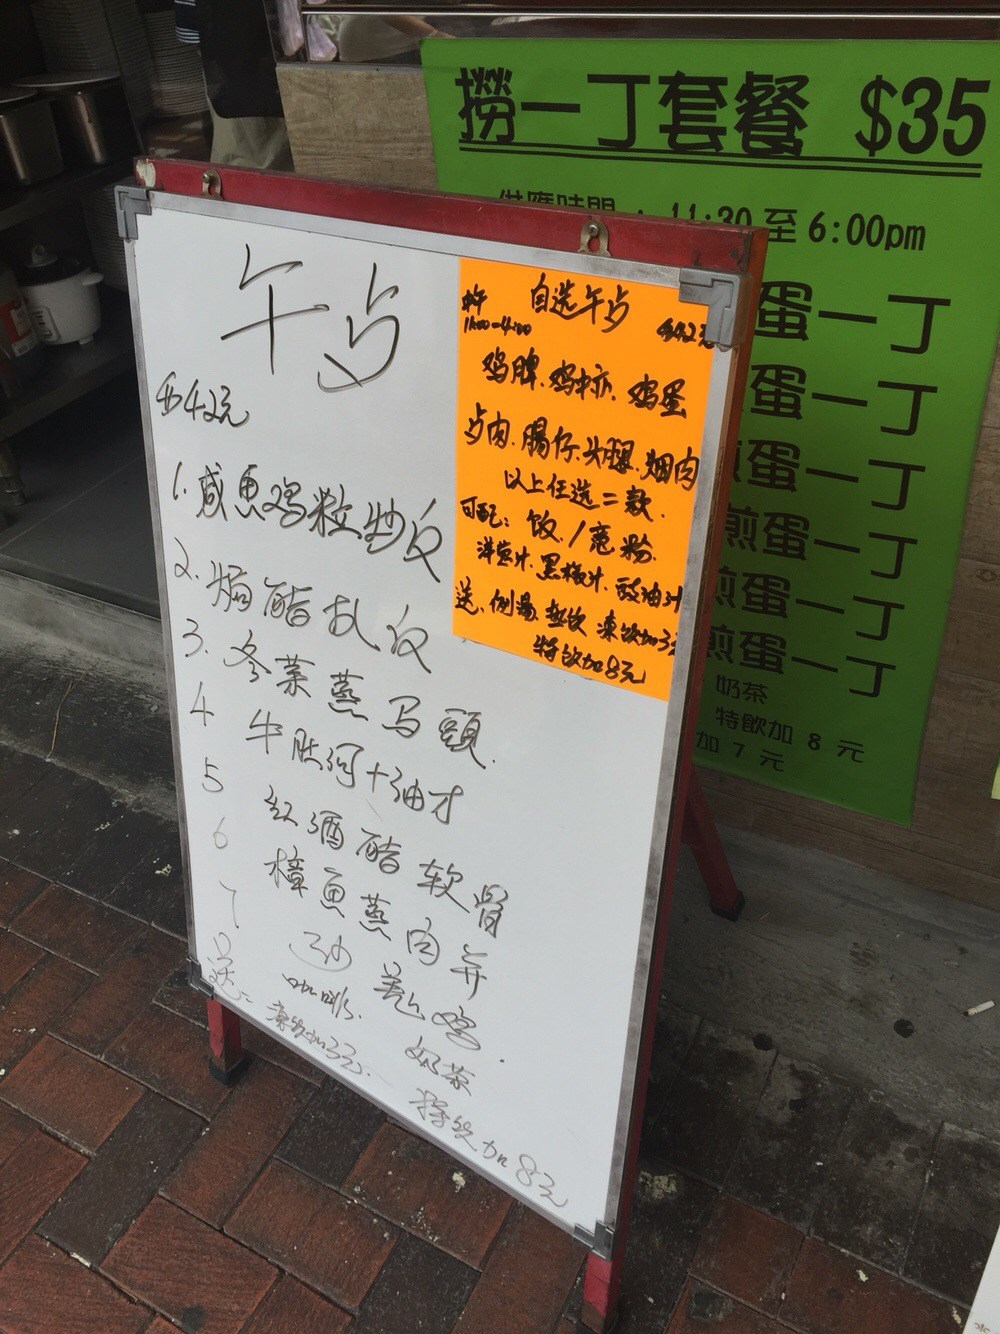 午占
$42元
1. 咸魚鸡粒炒反
2. 焗酯扒反
3. 冬菜蒸马頭
4 牛肚河+油才
5 红酒酯软骨
6 樟魚蒸肉并
7 沙姜鸡.
送: 咖啡. 奶茶
凍饮加3元. 特饮加8元
自选午占
11:00-4:00 $42元
鸡脾.鸡扒.鸡蛋
占肉.腸仔.头腿.烟肉
以上任选二款.
可配: 饭./意粉.
洋葱汁.黑椒汁.豉油汁
送.例湯.热饮 凍饮加3元
特饮加8元
撈一丁套餐 $35
供應時間 : 11:30 至 6:00pm
蛋一丁
蛋一丁
煎蛋一丁
煎蛋一丁
煎蛋一丁
煎蛋一丁
奶茶
特飲加 8 元
加 7 元